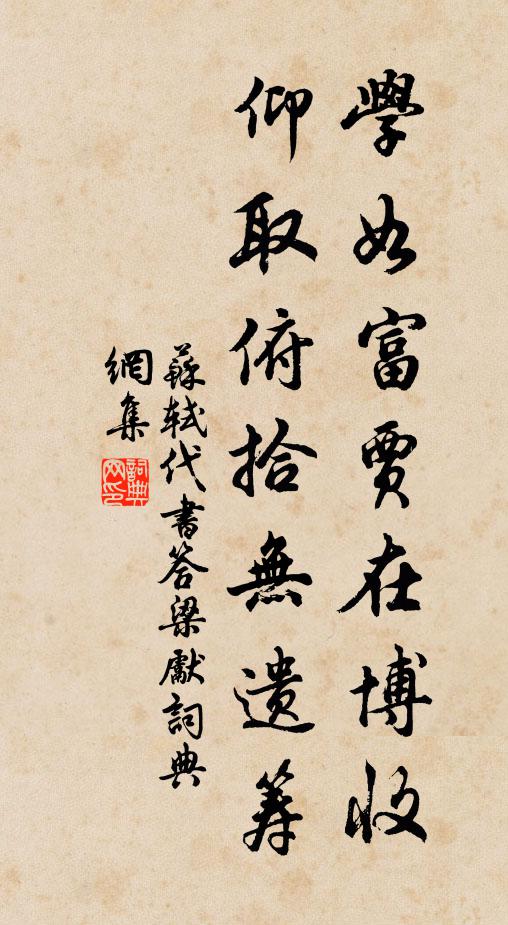 學如富賈在博收
仰取俯拾無遺筭
蘇軾代書答梁獻詞典
網集
詞典網印